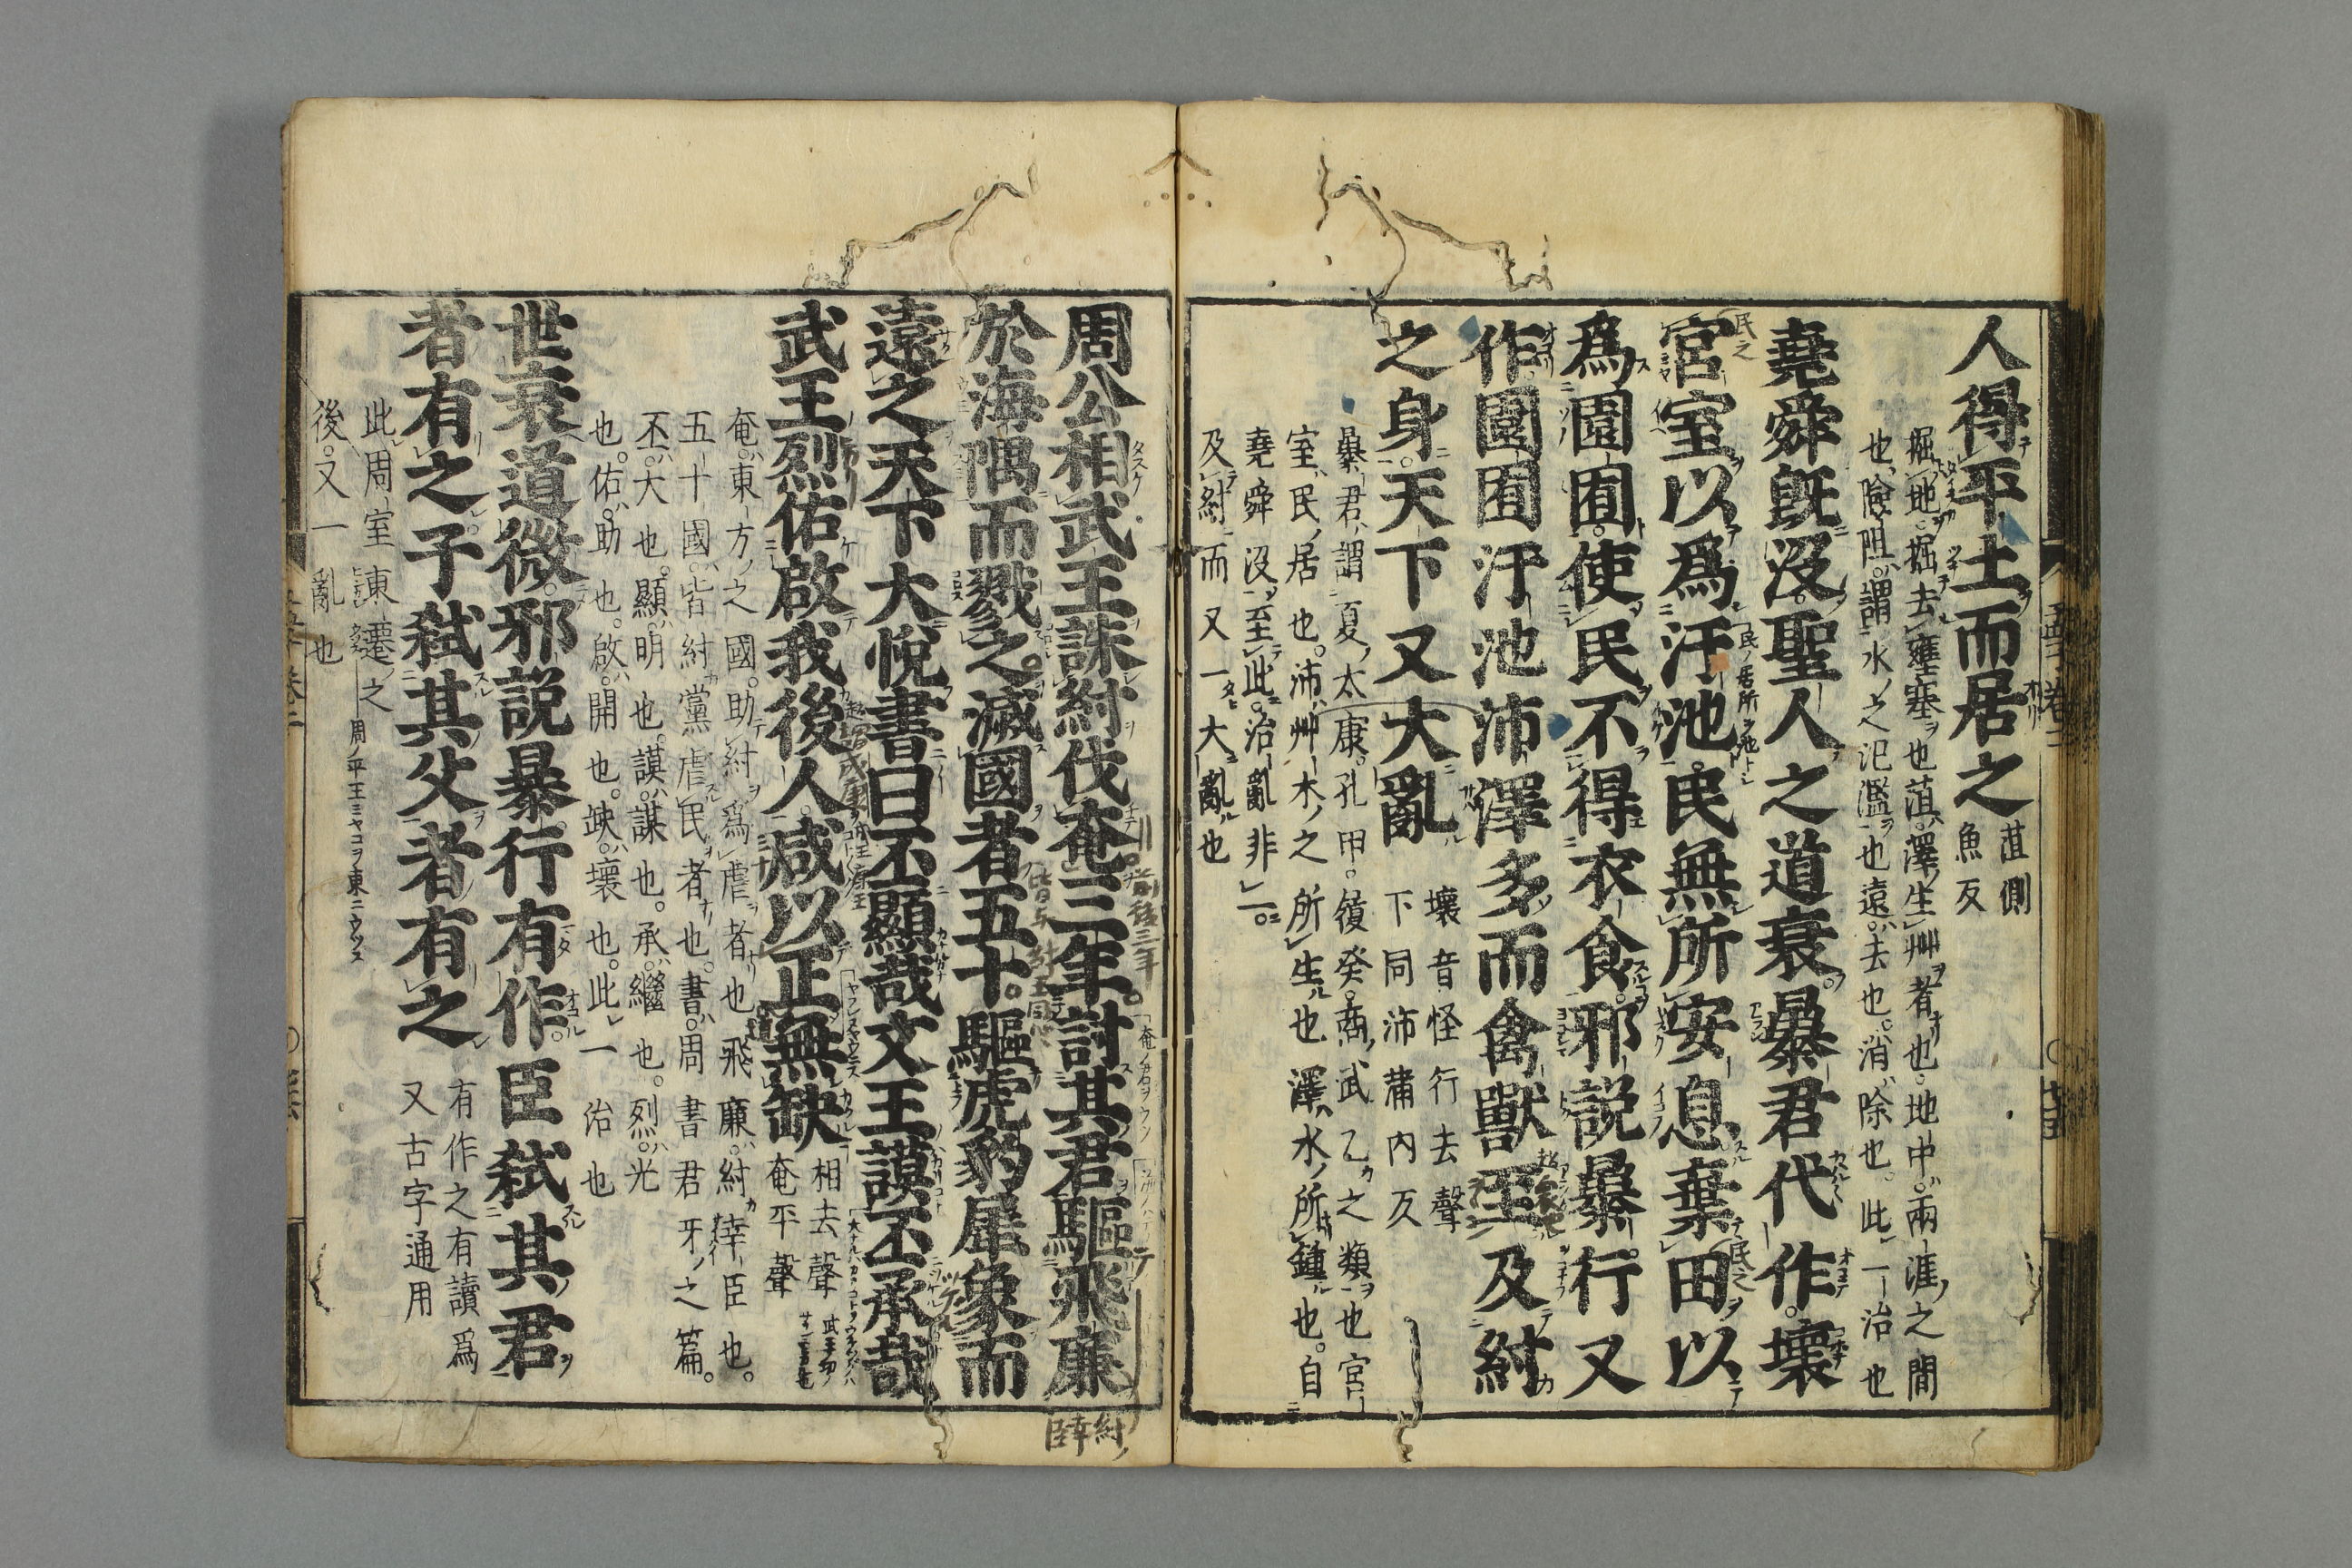 人得平土而居之
菹側
魚反
掘地。掘去壅塞也菹。澤生艸者也。地中。兩涯之間
也。險阻。謂水之氾濫也遠。去也。消除也。此一治也
堯舜旣沒。聖人之道衰。暴君代作。壞
宮室以爲汙池。民無所安息棄田以
爲園囿。使民不得衣食。邪説暴行又
作園囿汙池沛澤多而禽獸至及紂
之身。天下又大亂
壞音怪行去聲
下同沛蒲内反
暴君。謂夏太康。孔甲。履癸。商武乙之類也宮
室。民居也。沛。艸木之所生也澤。水所鍾也。自
堯舜沒至此。治亂非一。
及紂而又一大亂也
周公相武王誅紂伐奄三年討其君驅飛廉
於海隅而戮之。滅國者五十。驅虎豹犀象而
遠之天下大悅書曰丕顯哉文王謨丕承哉
武王烈佑啟我後人咸以正無缺
相去聲
奄平聲
奄。東方之國。助紂爲虐者也飛廉。紂幸臣也。
五十國。皆紂黨虐民者也。書。周書君牙之篇。
丕。大也。顯。明也。謨。謀也。承。繼也。烈。光
也。佑。助也。啟。開也。缺。壞也。此一治也
世衰道微。邪説暴行有作。臣弒其君
者有之子弒其父者有之
有作之有讀爲
又古字通用
此周室東遷之
後。又一亂也